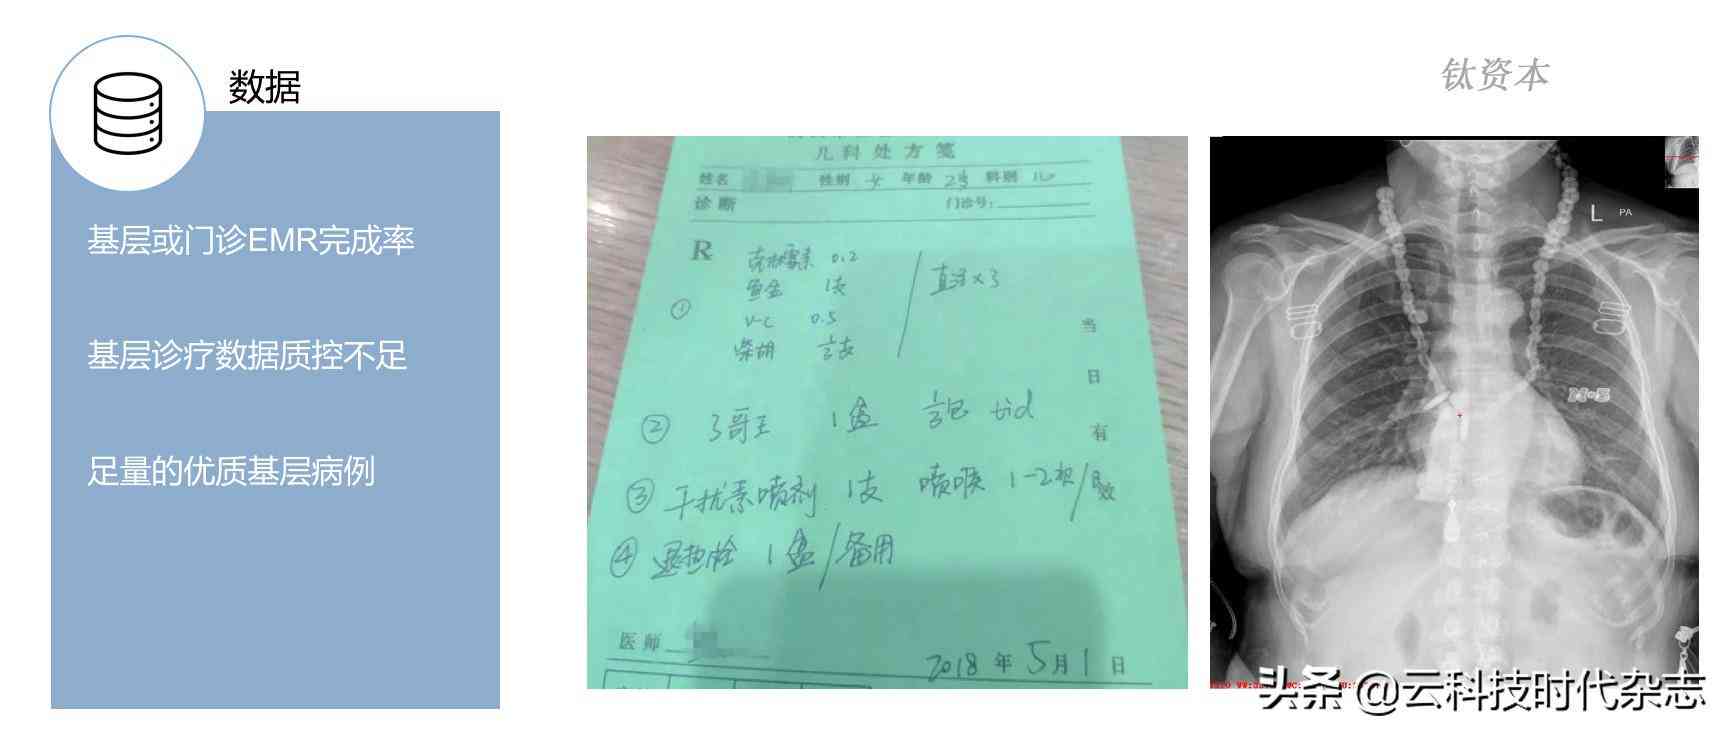 数据
钛资本
基层或门诊EMR完成率
基层诊疗数据质控不足
足量的优质基层病例
儿科处方笺
姓名 性别 女 年龄 科别 儿
诊断 门诊号:
R
① 克林霉素 0.2
1支
V-C 0.5
柴胡 ½支
×3
当日有效
② 3哥王 1盒 ½包 tid
③ 干扰素喷剂 1支 喷喉 1-2揿/日
④ 退热栓 1盒/备用
医师
2018年5月1日
L PA
头条 @云科技时代杂志